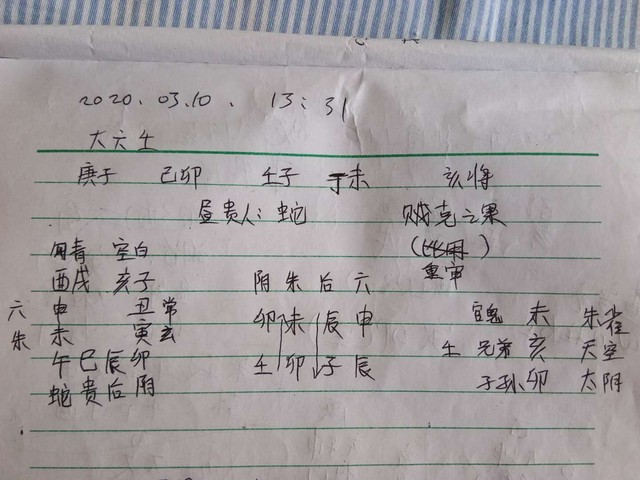 2020.03.10. 13:31
大六壬
庚子 己卯 壬子 丁未 亥将
昼贵人:蛇 贼克之课
勾青 空白 (比用)
酉戌 亥子 阴朱后六 重审
六 申 丑常 卯未辰申 官鬼 未 朱雀
朱 未 寅玄 土 兄弟 亥 天空
午巳辰卯 壬卯子辰 子孙 卯 太阴
蛇贵后阴